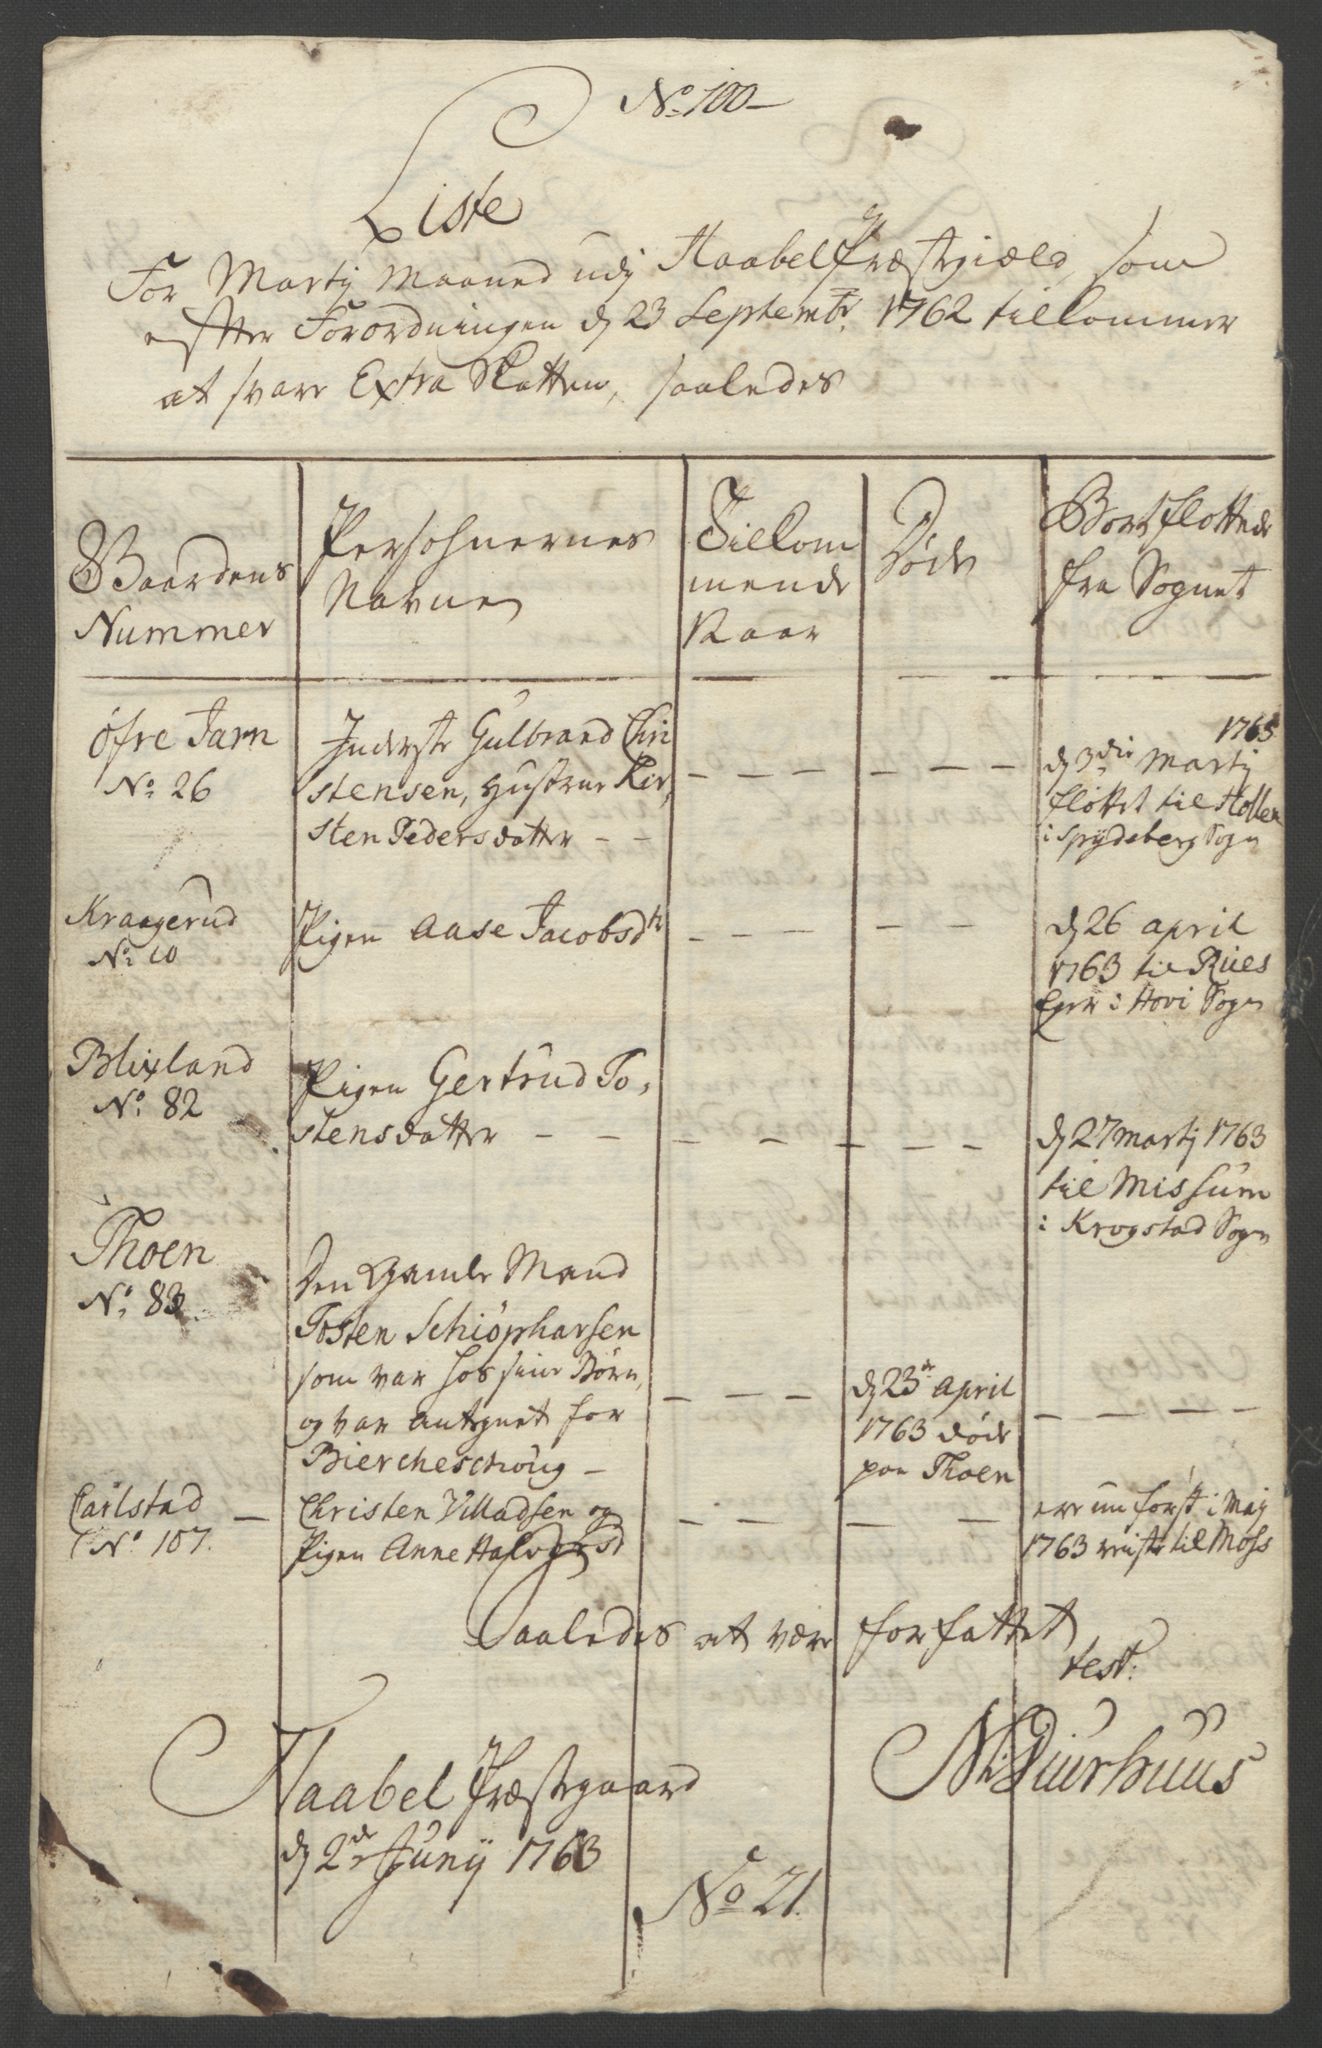 No: 100
Liste
For Martij Maaned udj Haabel Præstegield, som
efter Forordningen d: 23 Septembr: 1762 tilkommer
at svare Extra Skatten, saaledes
Gaardens
Nummer
Persohnernes
Navne
Tilkom
mende
Kaar
Døde
Bortfløttede
fra Sognet
Øfre Jarn
No: 26
Inderste Gulbrand Chri
stensen, Hustrue Kir,
sten Pedersdatter
1763
d: 3die Martij
fløttet til Hollen
i Spydeberg Sogn
Kraagerud
No: 10
Pigen Aase Jacobsdtr
d: 26 april
1763 til
i Hovi Sogn
Blixland
No: 82
Pigen Gertrud To,
stensdatter
d: 27 Martij 1763
til Missum
i Krogstad Sogn
Thoen
No: 83
Den Gamle Mand
Tosten Schiøpharsen
som var hos sine Børn,
og var antegnet for
Biercheschoug
d: 23de April
1763 døde
paa Thoen
Carlstad
No: 107.
Christen Villadsen og
Pigen Anne Halvorsd
ere nu først i Maij
1763 reiste til Moss
Saaledes at være forfattet
test:
Haabel Præstegaard
d: 2de Junij 1763
N: Diurhuus
No 21.